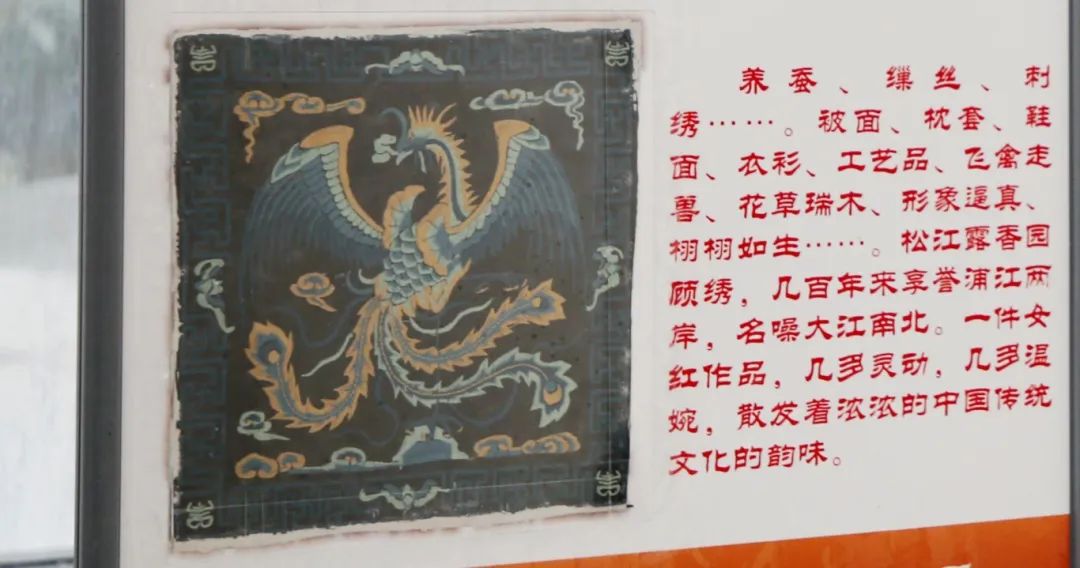 养蚕、缫丝、刺
绣……。被面、枕套、鞋
面、衣衫、工艺品、飞禽走
兽、花草瑞木、形象逼真、
栩栩如生……。松江露香园
顾绣，几百年来享誉浦江两
岸，名噪大江南北。一件女
红作品，几多灵动，几多温
婉，散发着浓浓的中国传统
文化的韵味。